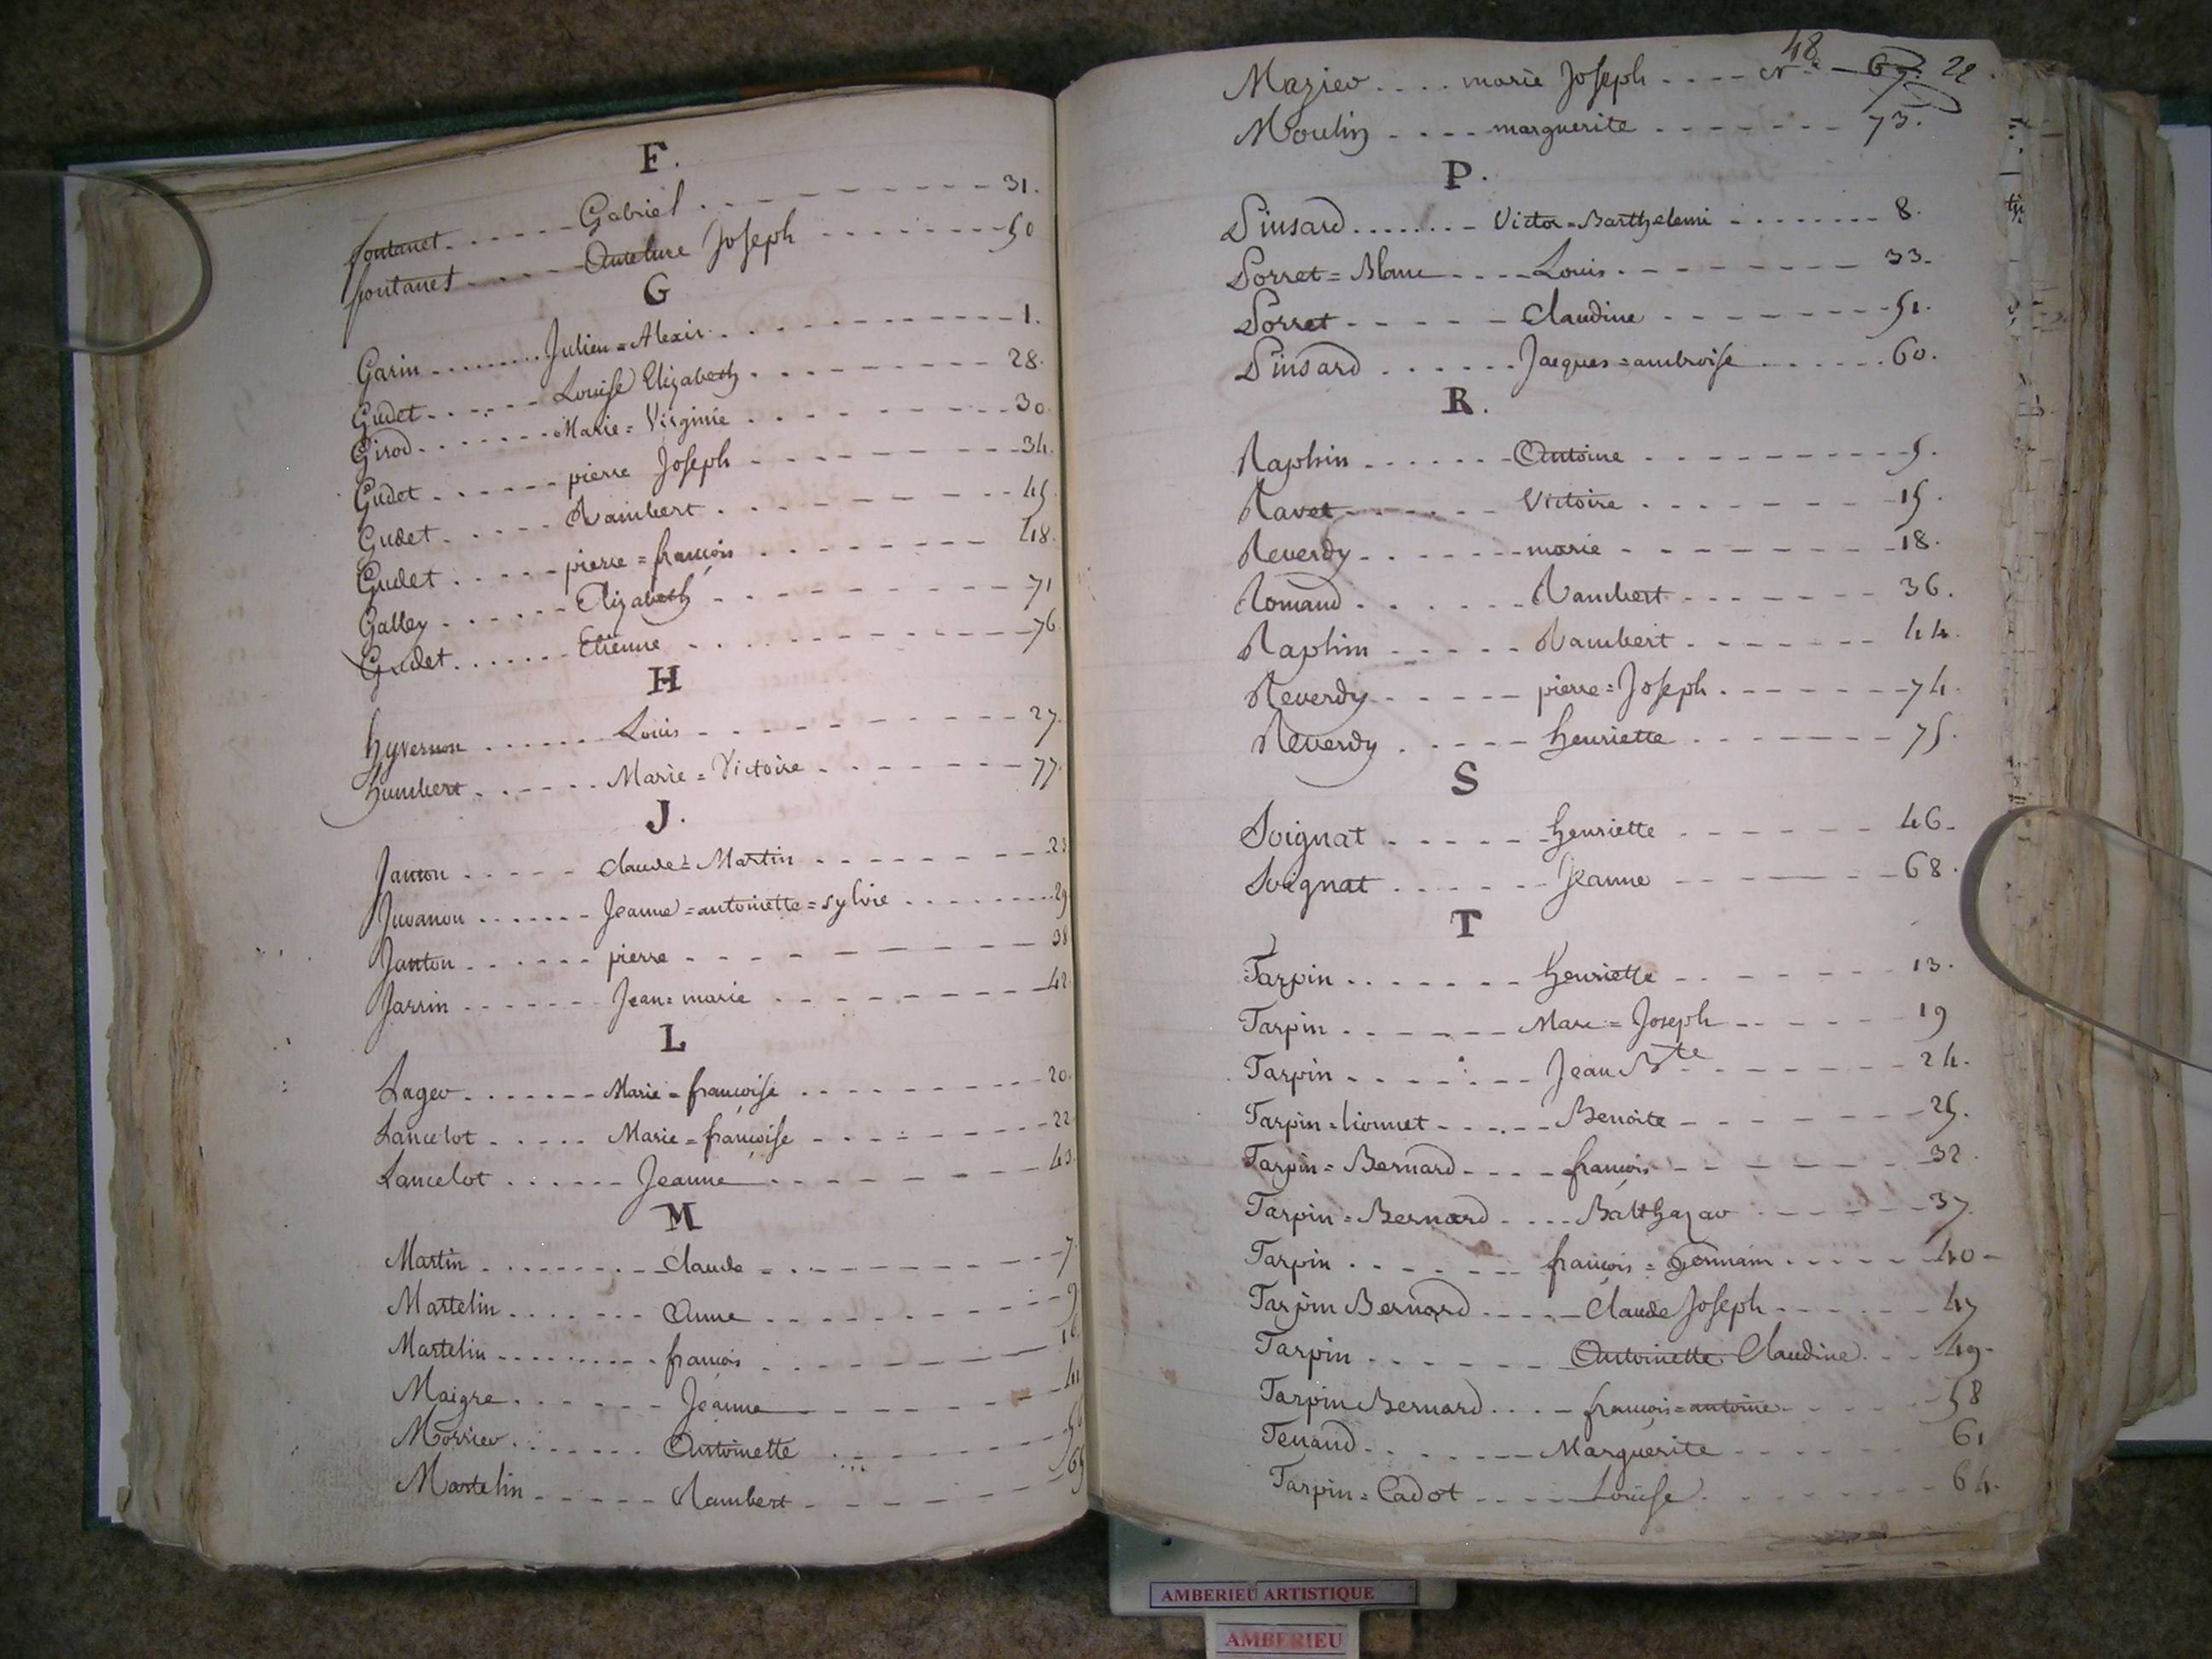 F.
fontanet - - - - - - Gabriel - - - - - - - - 31.
fontanet - - - - Antelme Joseph - - - - - - - - 50
G
Garin - - - - - - - - Julien = Alexis - - - - - - - - 1.
Gudet - - - - - - Louise Elizabeth - - - - - - - - 28.
Girod - - - - - - - Marie = Virginie - - - - - - - - 30.
Gudet - - - - - - pierre Joseph - - - - - - - - 34.
Gudet - - - - - Rambert - - - - - - - - 45
Gudet - - - - - pierre = françois - - - - - - - - 48.
Galley - - - - - - Elizabeth - - - - - - - - 71
Gudet - - - - - - Etienne - - - - - - - - 76
H
hyvernon - - - - - - Louis - - - - - - - - 27.
humbert - - - - - - Marie = Victoire - - - - - - - 77.
J.
Janton - - - - - claude = Martin - - - - - - - 23
Juvanon - - - - - - Jeanne = antoinette = sylvie - - - - - - - 29
Janton - - - - - - pierre - - - - - - - - 38
Jarrin - - - - - - - Jean = marie - - - - - - - - 42.
L
Lager - - - - - - - Marie = françoise - - - - - - - - 20.
Lancelot - - - - - Marie = françoise - - - - - - - - 22
Lancelot - - - - - - Jeanne - - - - - - - - 43.
M
Martin - - - - - - - - claude - - - - - - - - 7.
Martelin - - - - - - - Anne - - - - - - - - 9.
Martelin - - - - - - - - françois - - - - - - - - 16.
Maigre - - - - - - Jeanne - - - - - - - - 41
Morrier - - - - - - - Antoinette - - - - - - - -
Martelin - - - - - Rambert - - - - - - 69
Mazier - - - - marie Joseph - - - - N° 48. 67. 22.
Moulin - - - - marguerite - - - - - - - 73.
P.
Pinsard - - - - - - - Victor = Barthelemi - - - - - - - - 8.
Porret = Blanc - - - - Louis - - - - - - - - 33.
Porret - - - - - - Claudine - - - - - - - - 51.
Pinsard - - - - - - Jacques = ambroise - - - - - - 60.
R.
Raphin - - - - - - Antoine - - - - - - - - 5.
Ravet - - - - - - Victoire - - - - - - - 15.
Reverdy - - - - - - - marie - - - - - - - - 18.
Romand - - - - - - Rambert - - - - - - - 36.
Raphin - - - - - Rambert - - - - - - - 44.
Reverdy - - - - - pierre = Joseph - - - - - - - 74.
Reverdy - - - - - henriette - - - - - - - 75.
S
Soignat - - - - - henriette - - - - - - 46.
Soignat - - - - - - Jeanne - - - - - - 68.
T
Tarpin - - - - - - - henriette - - - - - - 13.
Tarpin - - - - - - Marc = Joseph - - - - - 19
Tarpin - - - - - - Jean Bte - - - - - - - 24.
Tarpin = lionnet - - - - - - Benoite - - - - - - 25.
Tarpin = Bernard - - - - françois - - - - - - 32.
Tarpin = Bernard - - - - Balthazar - - - - - - 37.
Tarpin - - - - - - françois = germain - - - - - 40 -
Tarpin Bernard - - - - - Claude Joseph - - - - - - 47
Tarpin - - - - - - Antoinette Claudine - - - 49 -
Tarpin Bernard - - - - françois = antoine - - - - - 58
Tenand - - - - - - Marguerite - - - - - - 61
Tarpin = Cadot - - - - Louise - - - - - - - - 64.
AMBERIEU ARTISTIQUE
AMBERIEU